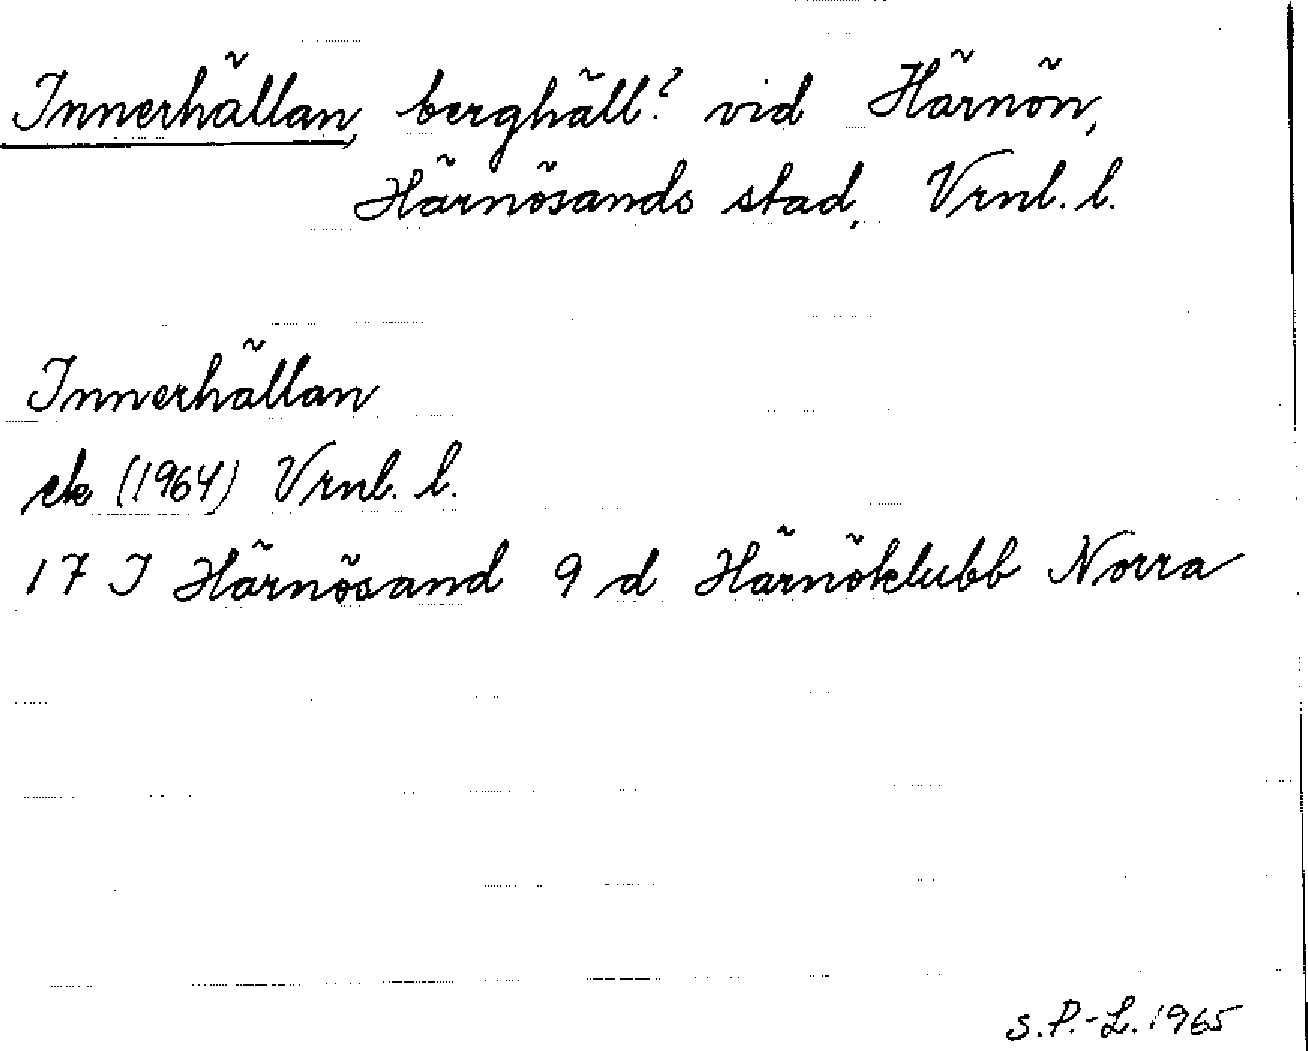 Innerhällan, berghäll? vid Härnön,
Härnösands stad, Vrnl. l.
Innerhällan
ek (1964) Vrnl. l.
17 I Härnösand 9 d Härnöklubb Norra
S.P.-L. 1965